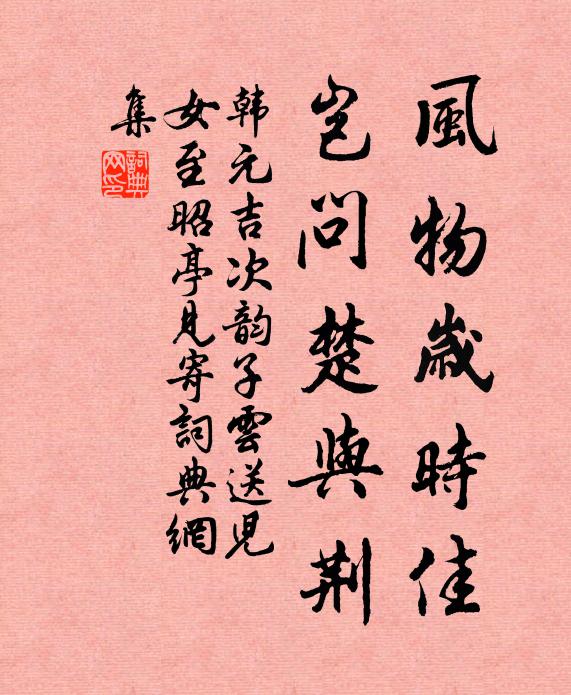 風物歲時佳
豈問楚與荆
韩元吉次韵子雲送兒
女至昭亭見寄詞典網
集
詞典
网印